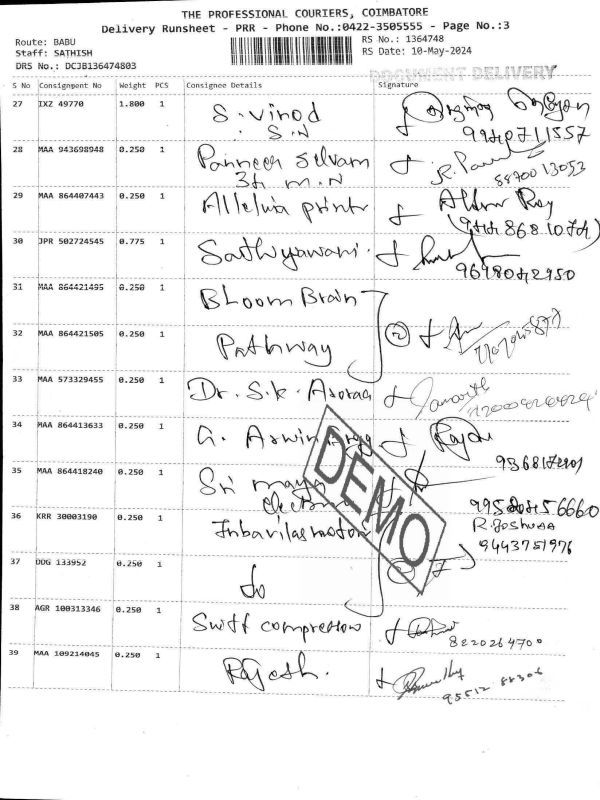 THE PROFESSIONAL COURIERS, COIMBATORE
Delivery Runsheet - PRR - Phone No.:0422-3505555 - Page No.:3
Route: BABU
Staff: SATHISH
DRS No.: DCJB136474803
RS No.: 1364748
RS Date: 10-May-2024
DOCUMENT DELIVERY
S No Consignment No Weight PCS Consignee Details Signature
27 IXZ 49770 1.800 1 S. Vinod
S.N
9940711557
28 MAA 943698948 0.250 1 Panneer Selvam
M.N
88700 13053
29 MAA 864407443 0.250 1 Alleluia printr
30 JPR 502724545 0.775 1 Sathyawani.
31 MAA 864421495 0.250 1 Bloom Brain
32 MAA 864421505 0.250 1 Pathway
②
33 MAA 573329455 0.250 1 Dr. S.K.
34 MAA 864413633 0.250 1 G. Aswin
35 MAA 864418240 0.250 1 Sri maya
36 KRR 30003190 0.250 1 Inbavilas motors
R. Joshuaa
9443751976
37 DDG 133952 0.250 1 do
38 AGR 100313346 0.250 1 Swift compressor
8220264700
39 MAA 109214045 0.250 1 Rajesh.
95512 88306
DEMO